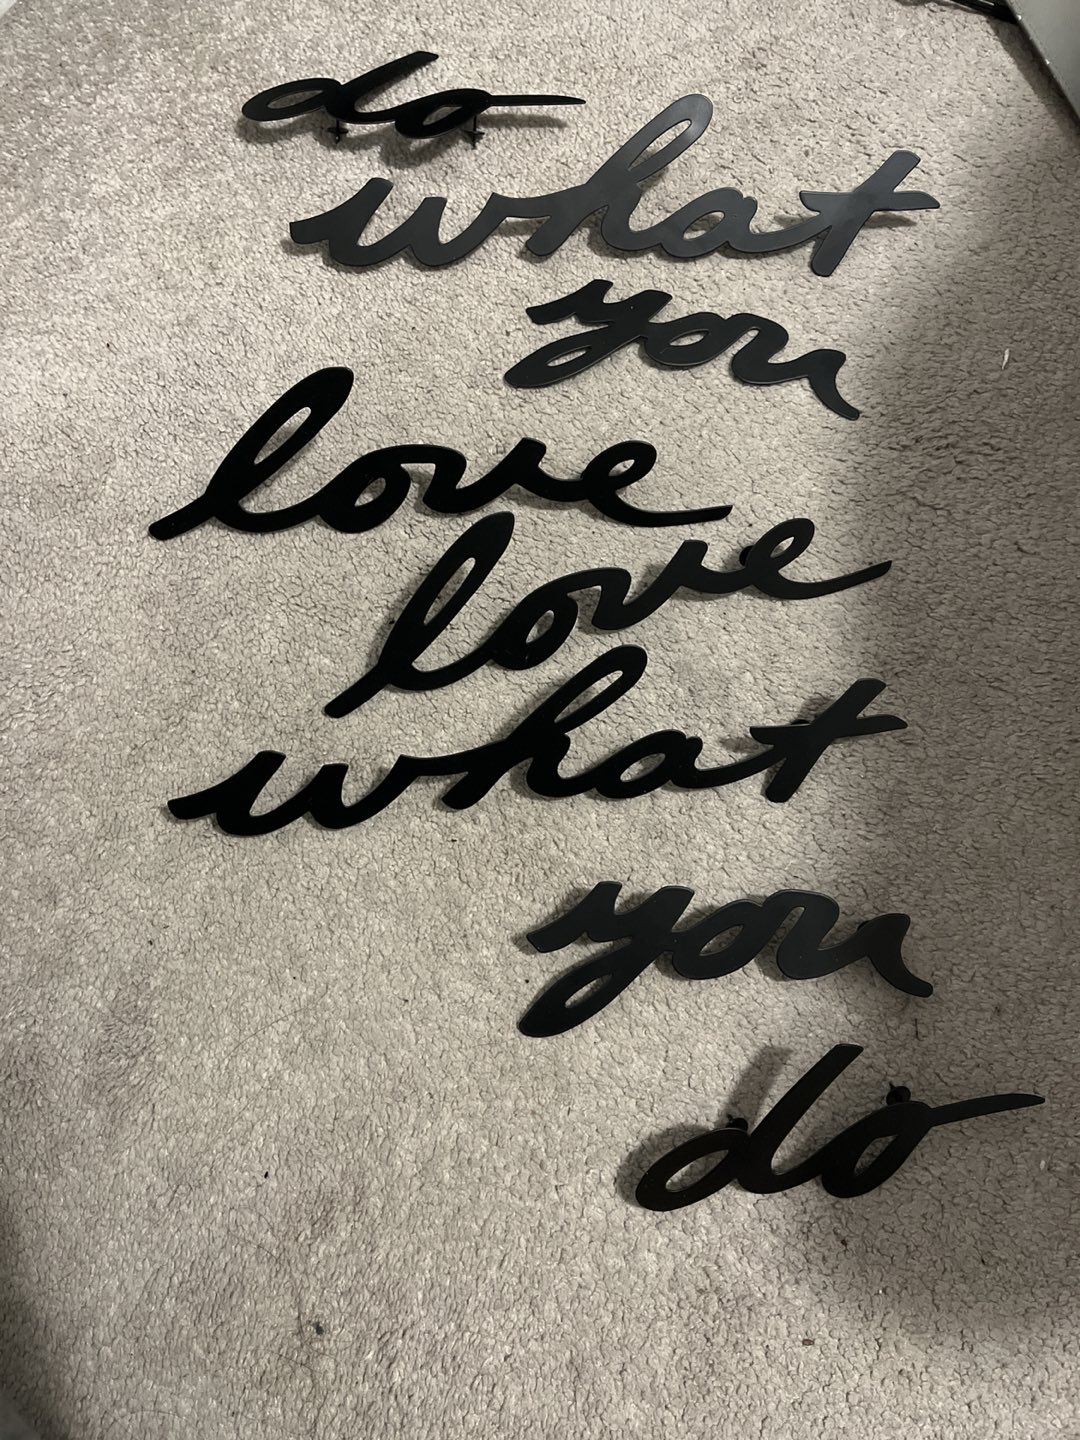 do
what
you
love
love
what
you
do